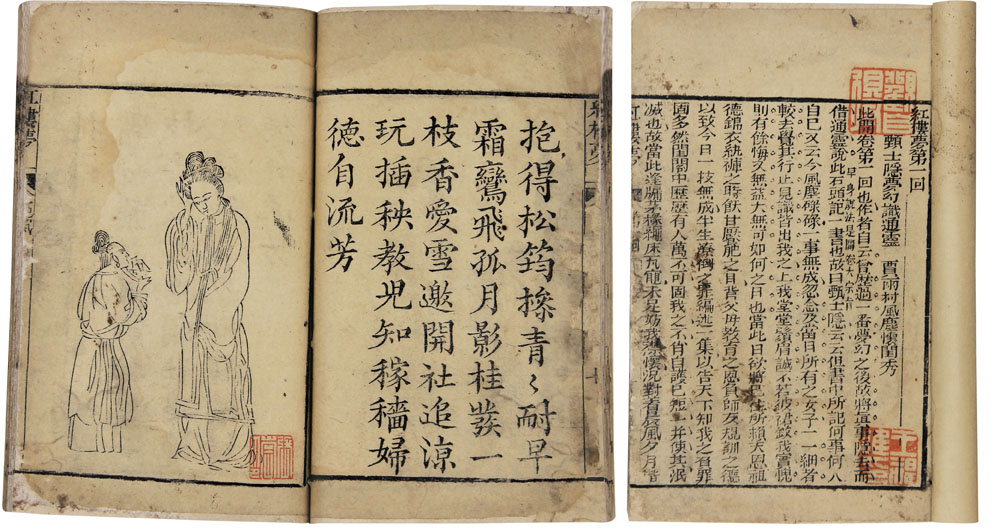 紅樓夢
抱得松筠操青〻耐早
霜鸞飛孤月影桂發一
枝香愛雪邀開社追涼
玩插秧教兒知稼穡婦
德自流芳
紅樓夢第一回
甄士隱夢幻識通靈 賈雨村風塵懷閨秀
此開卷第一回也作者自云曾歷過一番夢幻之後故將真事隱去而
借通靈說此石頭記一書也故曰甄士隱云云但書中所記何事何人
自己又云今風塵碌碌一事無成忽念及當日所有之女子一一細考
較去覺其行止見識皆出我之上我堂堂鬚眉誠不若彼裙釵我實愧
則有餘悔又無益大無可如何之日也當此日欲將已往所賴天恩祖
德錦衣紈褲之時飫甘饜肥之日背父母教育之恩負師友規訓之德
以致今日一技無成半生潦倒之罪編述一集以告天下知我之負罪
固多然閨閣中歷歷有人萬不可因我之不肖自護己短一并使其泯
滅也故當此蓬牖茅椽繩床瓦灶未足妨我襟懷況對着晨風夕月階
紅樓夢